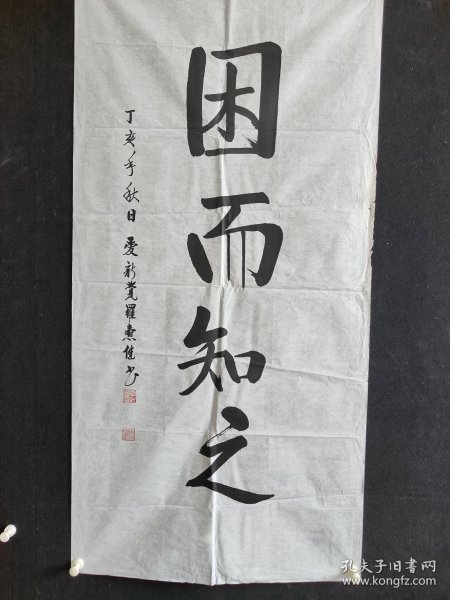 困而知之
丁亥年秋日 爱新觉罗焘佳书
孔夫子旧书网
www.kongfz.com